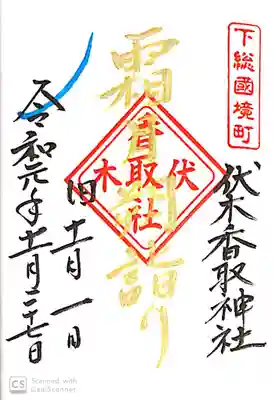 下総國境町
伏木香取神社
霜月朔詣り
伏木
香取社
旧十一月一日
令和元年十一月二十七日
CS Scanned with CamScanner